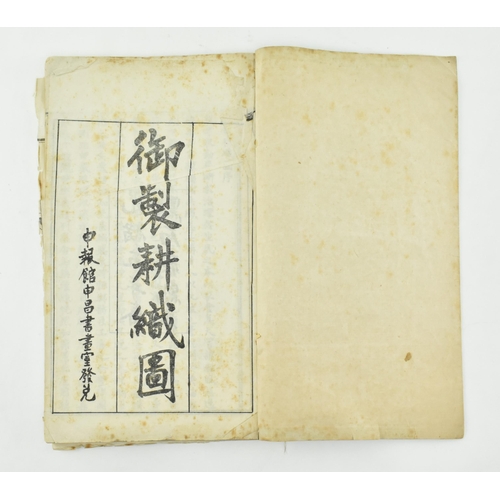 御製耕織圖
申報館申昌書畫室發兌